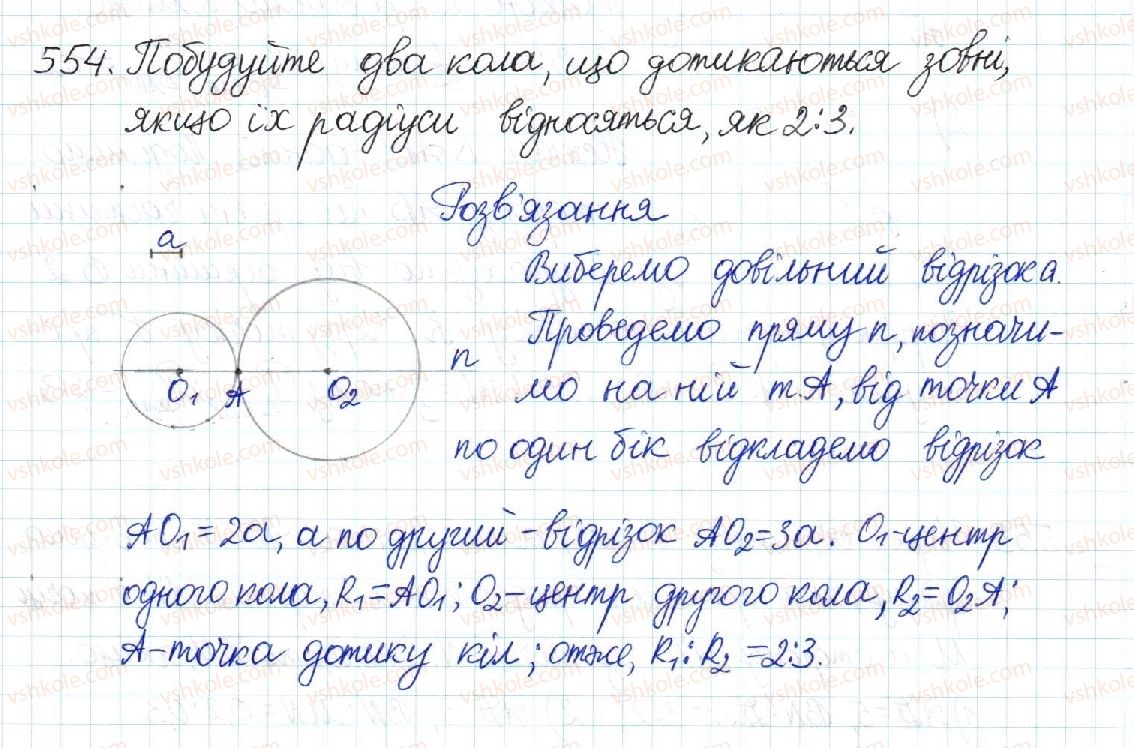 554. Побудуйте два кола, що дотикаються зовні,
якщо їх радіуси відносяться, як 2:3.
Розв'язання
a
Виберемо довільний відрізок a.
Проведемо пряму n, позначи-
мо на ній т. A, від точки A
по один бік відкладемо відрізок
n
O₁ A O₂
AO₁ = 2a, а по другий - відрізок AO₂ = 3a. O₁ - центр
одного кола, R₁ = AO₁; O₂ - центр другого кола, R₂ = O₂A;
A - точка дотику кіл; отже, R₁ : R₂ = 2:3.
vshkole.com